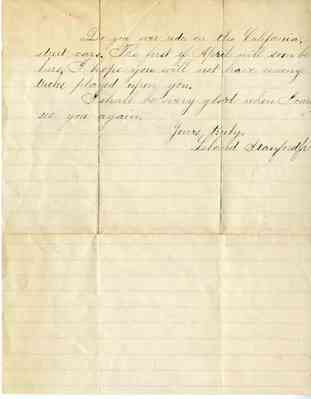 Do you ever ride on the California
street cars. The first of April will soon be
here, I hope you will not have many
tricks played upon you.
I shall be very glad when I can
see you again.
Yours truly,
Leland Stanford Jr